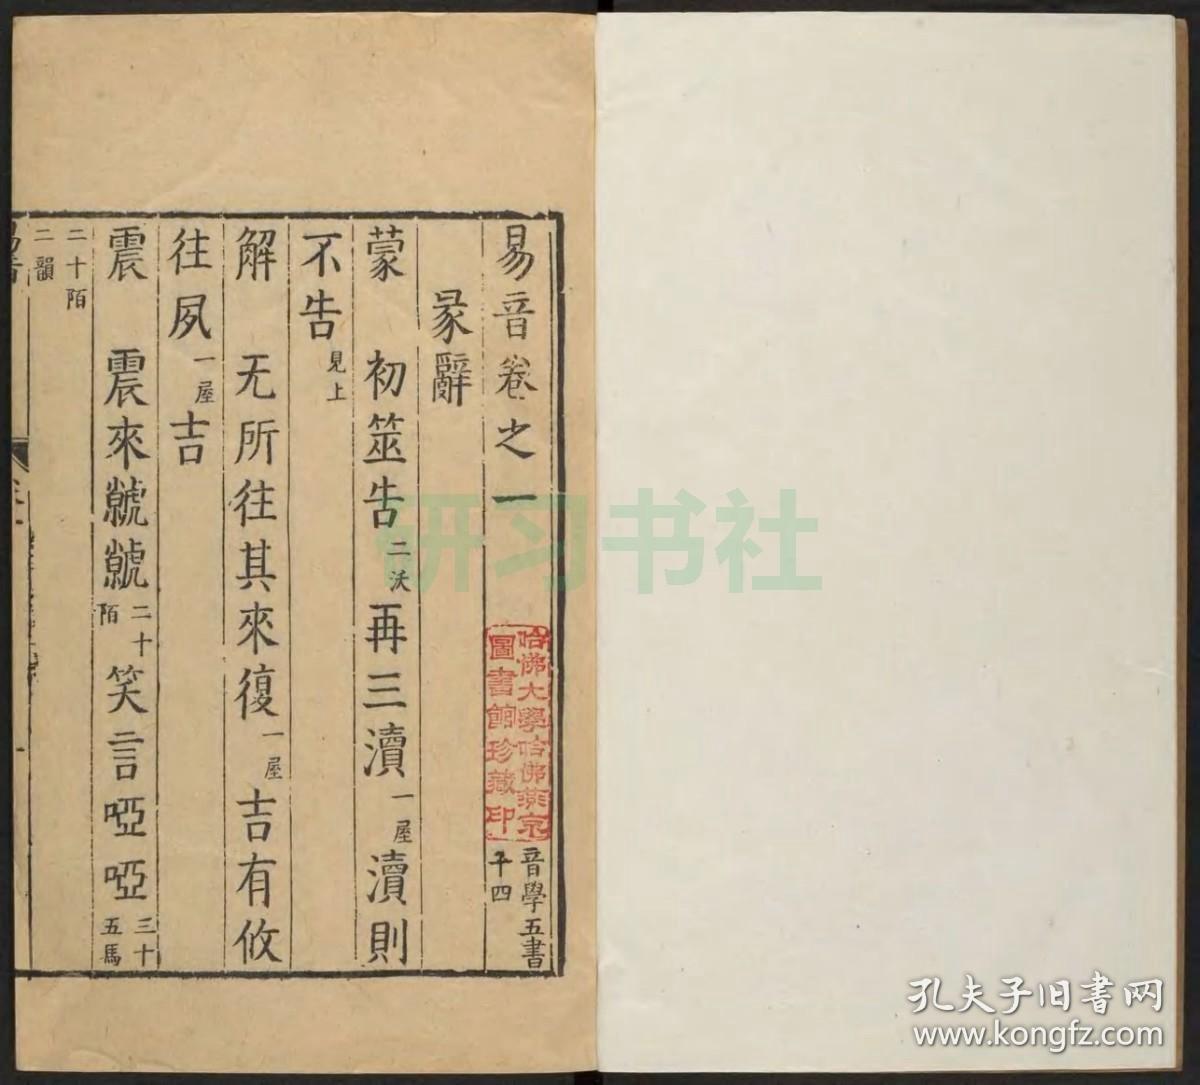 易音卷之一
音學五書
十四
哈佛大學哈佛燕京
圖書館珍藏印
彖辭
蒙　初筮告二沃再三瀆一屋瀆則
不告見上
解　无所往其來復一屋吉有攸
往夙一屋吉
震　震來虩虩二十陌笑言啞啞三十五馬
二十陌
二韻
研习书社
孔夫子旧书网
www.kongfz.com